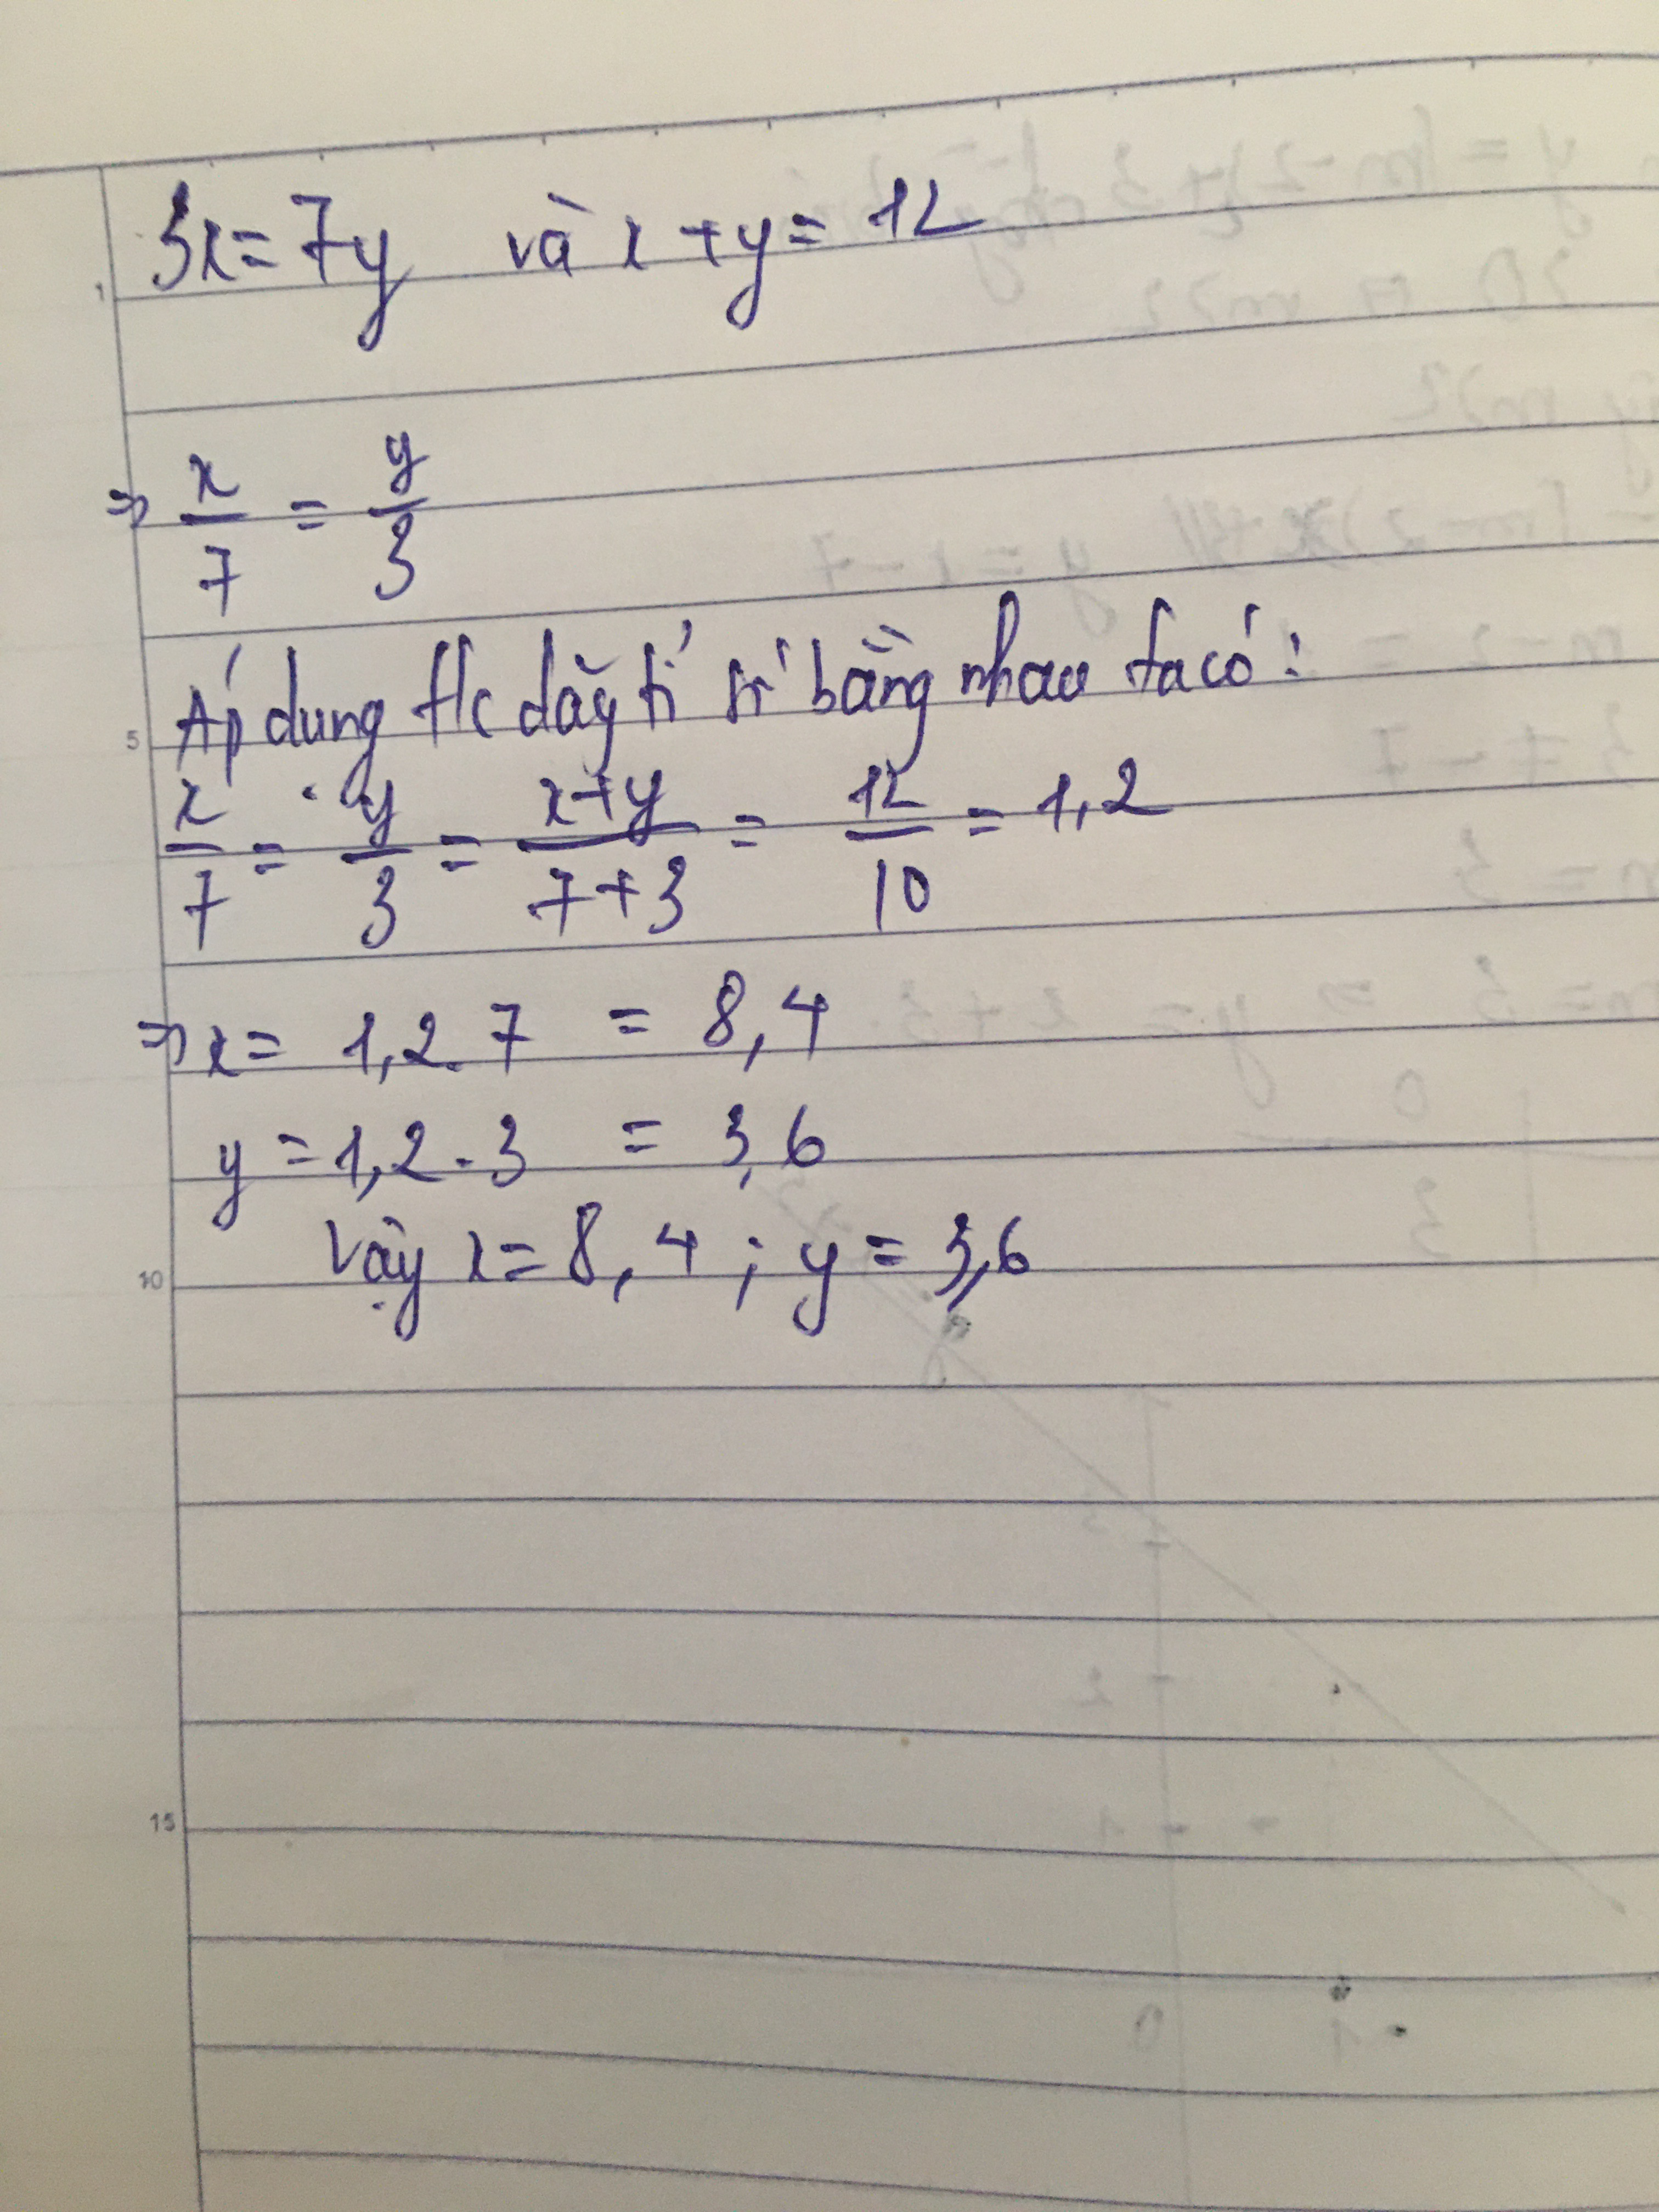 3x = 7y và x + y = 12
1
=> x/7 = y/3
Áp dung t/c dãy tỉ số bằng nhau ta có:
5
x/7 = y/3 = x+y/7+3 = 12/10 = 1,2
=> x = 1,2.7 = 8,4
y = 1,2.3 = 3,6
Vậy x = 8,4; y = 3,6
10
15